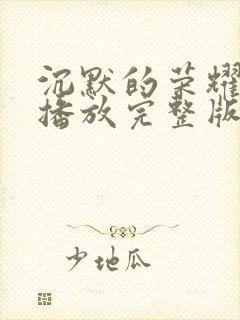 沉默的荣耀
播放完整版
少地瓜